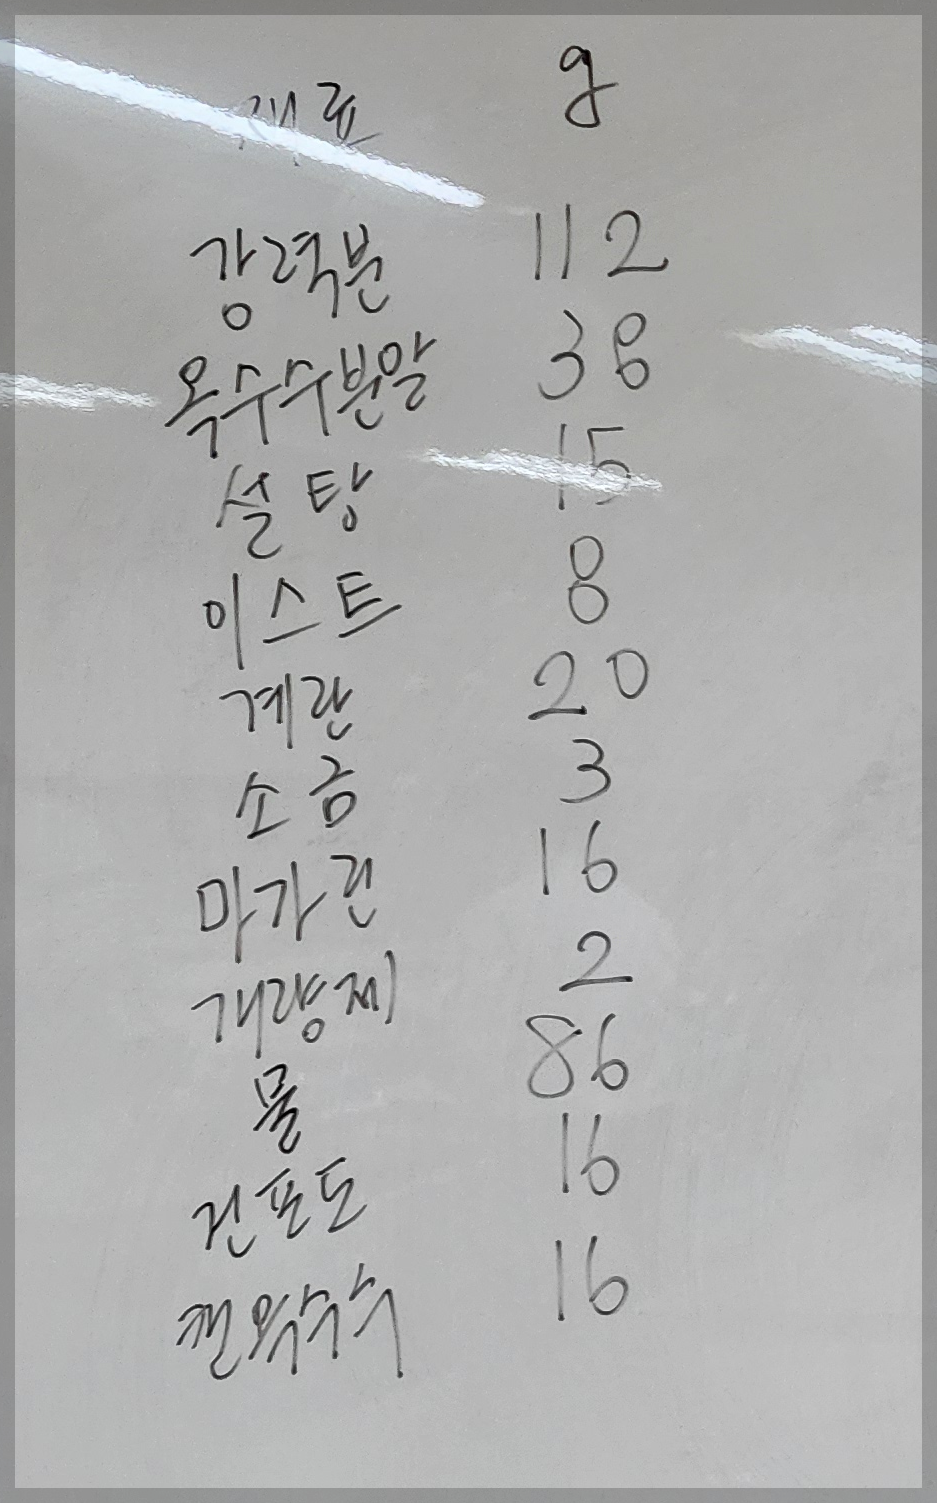 재료 g
강력분 112
옥수수분말 38
설탕 15
이스트 8
계란 20
소금 3
마가린 16
개량제 2
물 86
건포도 16
캔옥수수 16